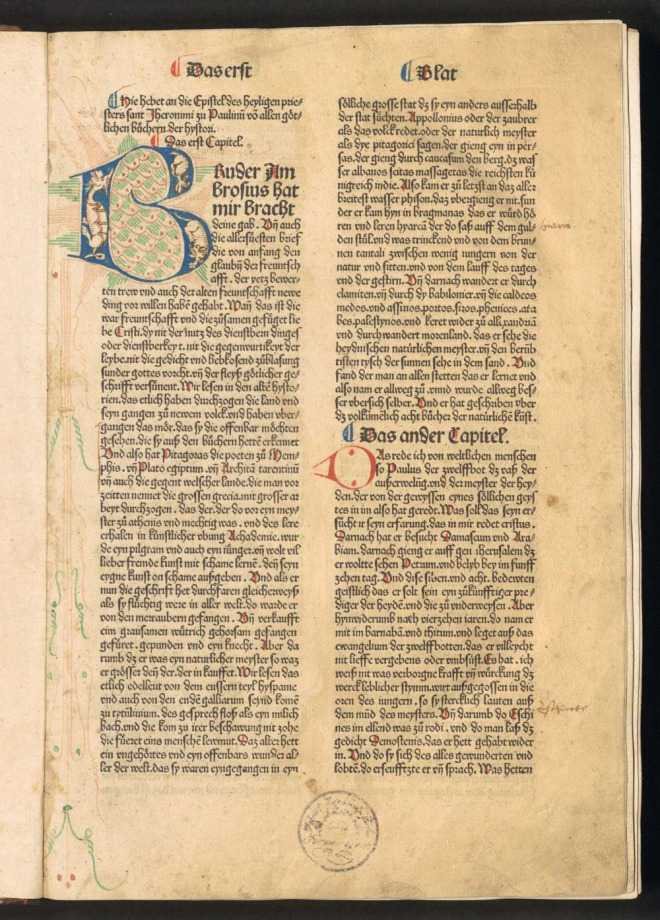 Das erst
Blat
Hie hebet an die Epistel des heyligen prie-
sters sant Jheronimi zu Paulinū vō allen göt-
lichen büchern der hystori.
Das erst Capitel.
Bruder Am
brosius hat
mir bracht
deine gab. Vn̄ auch
die allersüesten brief
die von anfang der
glaubn̄ der freuntsch
afft. der yetz bewer-
ten trew vnd auch der alten freuntschafft newe
ding vor willen habē gehabt. Wan̄ das ist die
war freuntschafft vnd die zůsamen gefüget lie
be Cristi. dy nit der nutz des dienstbern dinges
oder dienstberkeyt. nit die gegenwurtikeyt der
leybe. nit die gedicht vnd liebkosend zůblasung
sunder gottes vorcht. vn̄ der fleyß götlicher ge-
schrifft versünent. Wir lesen in den altē hysto-
rien. das etlich haben durchzogen die land vnd
seyn gangen zů newem volck. vnd haben vber-
gangen das mör. das sy die offenbar möchten
gesehen. die sy auß den büchern hettē erkennet
Vnd also hat Pitagoras die poeten zů Mem-
phis. vn̄ Plato egiptum. vn̄ Architā tarentinū
vn̄ auch die gegent welscher lande. die man vor
zeitten nennet die grossen grecia. mit grosser ar
beyt durchzogen. das der. der do vor eyn mey-
ster zů athenis vnd mechtig was. vnd des lere
erhalen in künstlicher vbung Achademie. wur
de eyn pilgram vnd auch eyn iünger. vn̄ wolt vil
lieber fremde kunst mit schame lernē. den̄ seyn
eygne kunst on schame aufgeben. Vnd als er
nun die geschrift het durchfaren gleicherweyß
als sy flüchtig were in aller welt. do warde er
von den meraubern gefangen. Vn̄ verkaufft
ein grausamen wütrich gehorsam gefangen
gefüret. gepunden vnd eyn knecht. Aber da
rumb dz er was eyn naturlicher meyster so waz
er grösser den̄ der. der in kauffet. Wir lesen das
etlich edelleut von dem eussern teyl hyspanie
vnd auch von den enden galliarum seynd komē
zu tytūliuium. des gesprech floß als eyn milch
bach. vnd die kom zu irer beschawung nit zohe
die füeret eins menschē lewmut. Daz alter hett
ein vngehörtes vnd eyn offenbars wunder al-
ler der welt. das sy waren eyngegangen in eyn
söliche grosse stat dz sy eyn anders ausserhalb
der stat suchten. Appollonius oder der zaubrer
als das volck redet. oder der naturlich meyster
als dye pitagorici sagen. der gieng eyn in per-
sas. der gieng durch caucasum den berg. dz was
ser albanos scitas massagetas die reichsten kü
nigreich indie. Also kam er zů letzst an daz aller
breitest wasser phison. daz vbergieng er nit. sun
der er kam hyn in bragmanas das er würd hö
ren vnd leren hyarcā der do saß auff dem gul-
den stůl. vnd was trinckend vnd von dem brun-
nen tantali zwischen wenig iungern von der
natur vnd sitten. vnd von dem lauff des tages
vnd der gestirn. Vn̄ darnach wandert er durch
elamiten. vn̄ durch dy babilonier. vn̄ die caldeos
medos. vnd assirios. partos. siros. phenices. ara
bes. palestynos. vnd keret wider zů allexandriā
vnd durchwandert morenland. das er sehe die
heydnischen natürlichen meyster. vn̄ den berüb
tisten tysch der sunnen sehe in dem sand. Vnd
fand der man an allen stetten das er lernet vnd
also nam er allweg zů. vnnd wurde allweg bes-
ser vbersich selber. Vnd er hat geschriben vber
dz volkūmelich acht bücher der natürliche kūst.
Das ander Capitel.
DAs rede ich von weltlichen menschen
so Paulus der zwelffbot dz vaß der
außerwelūg. vnd der meyster der hey-
den. der von der gewyssen eynes sölichen geys
tes in im also hat geredt. Was soll das seyn er-
sücht ir seyn erfarung. das in mir redet cristus.
Darnach hat er besucht Damascum vnd Ara-
biam. darnach gieng er auff gen iherusalem dz
er woltte sehen Petrum. vnd belyb bey im funff
zehen tag. Vnd dise siben. vnd acht. bedewten
geistlich das er solt sein eyn zükünfftiger pre-
diger der heydē. vnd die zů vnderweysen. Aber
hynwiderumb nach vierzehen iaren. do nam er
mit im barnabā. vnd thitum. vnd leget auß das
ewangelium der zwelffbotten. das er villeycht
nit lieffe vergebens oder vmbsüst. Es hat. ich
weiß nit was verborgne krafft vn̄ würckung dz
wercklicblicher stymm. wirt außgegossen in die
oren des iungern. so sy stercklich lauten auß
dem mūd des meysters. Vn̄ darumb do Eschi
nes im ellend was zů rodi. vnd do man laß dz
gedicht Demostenis. das er hett gehabt wider
in. Vnd do sy sich des alles gewunderten vnd
lobtē. do erseufftzte er vn̄ sprach. Was hetten